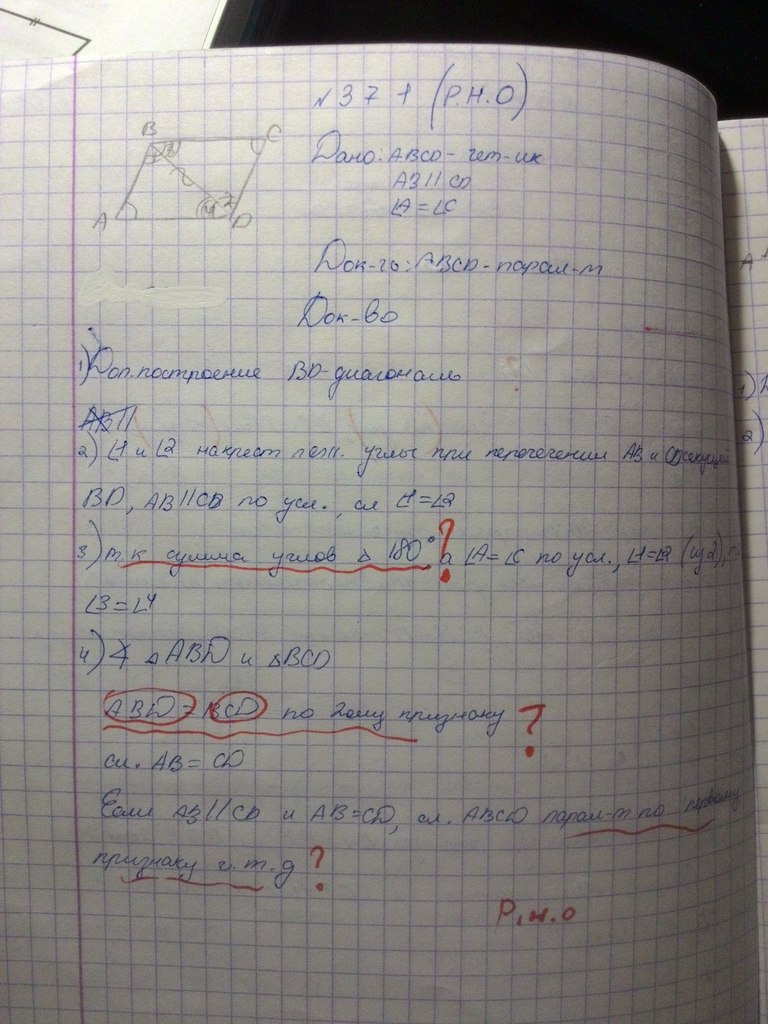 №371 (Р.Н.О)
B C
A D
1 3
4 2
Дано: ABCD - чет-ик
AB || CD
∠A = ∠C
Док-ть: ABCD - парал-м
Док-во
1) Доп. построение BD - диагональ
AB ||
2) ∠1 и ∠2 накрест леж. углы при перечечении AB и CD секущей
BD, AB || CD по усл., сл ∠1 = ∠2
3) т.к сумма углов △ 180° ? а ∠A = ∠C по усл., ∠1 = ∠2 (из 2), т
∠3 = ∠4
4) ∢ △ABD и △BCD
ABD = BCD по 2ому признаку ?
сл. AB = CD
Если AB || CD и AB = CD, сл. ABCD парал-м по первому
признаку ч.т.д ?
Р.н.о